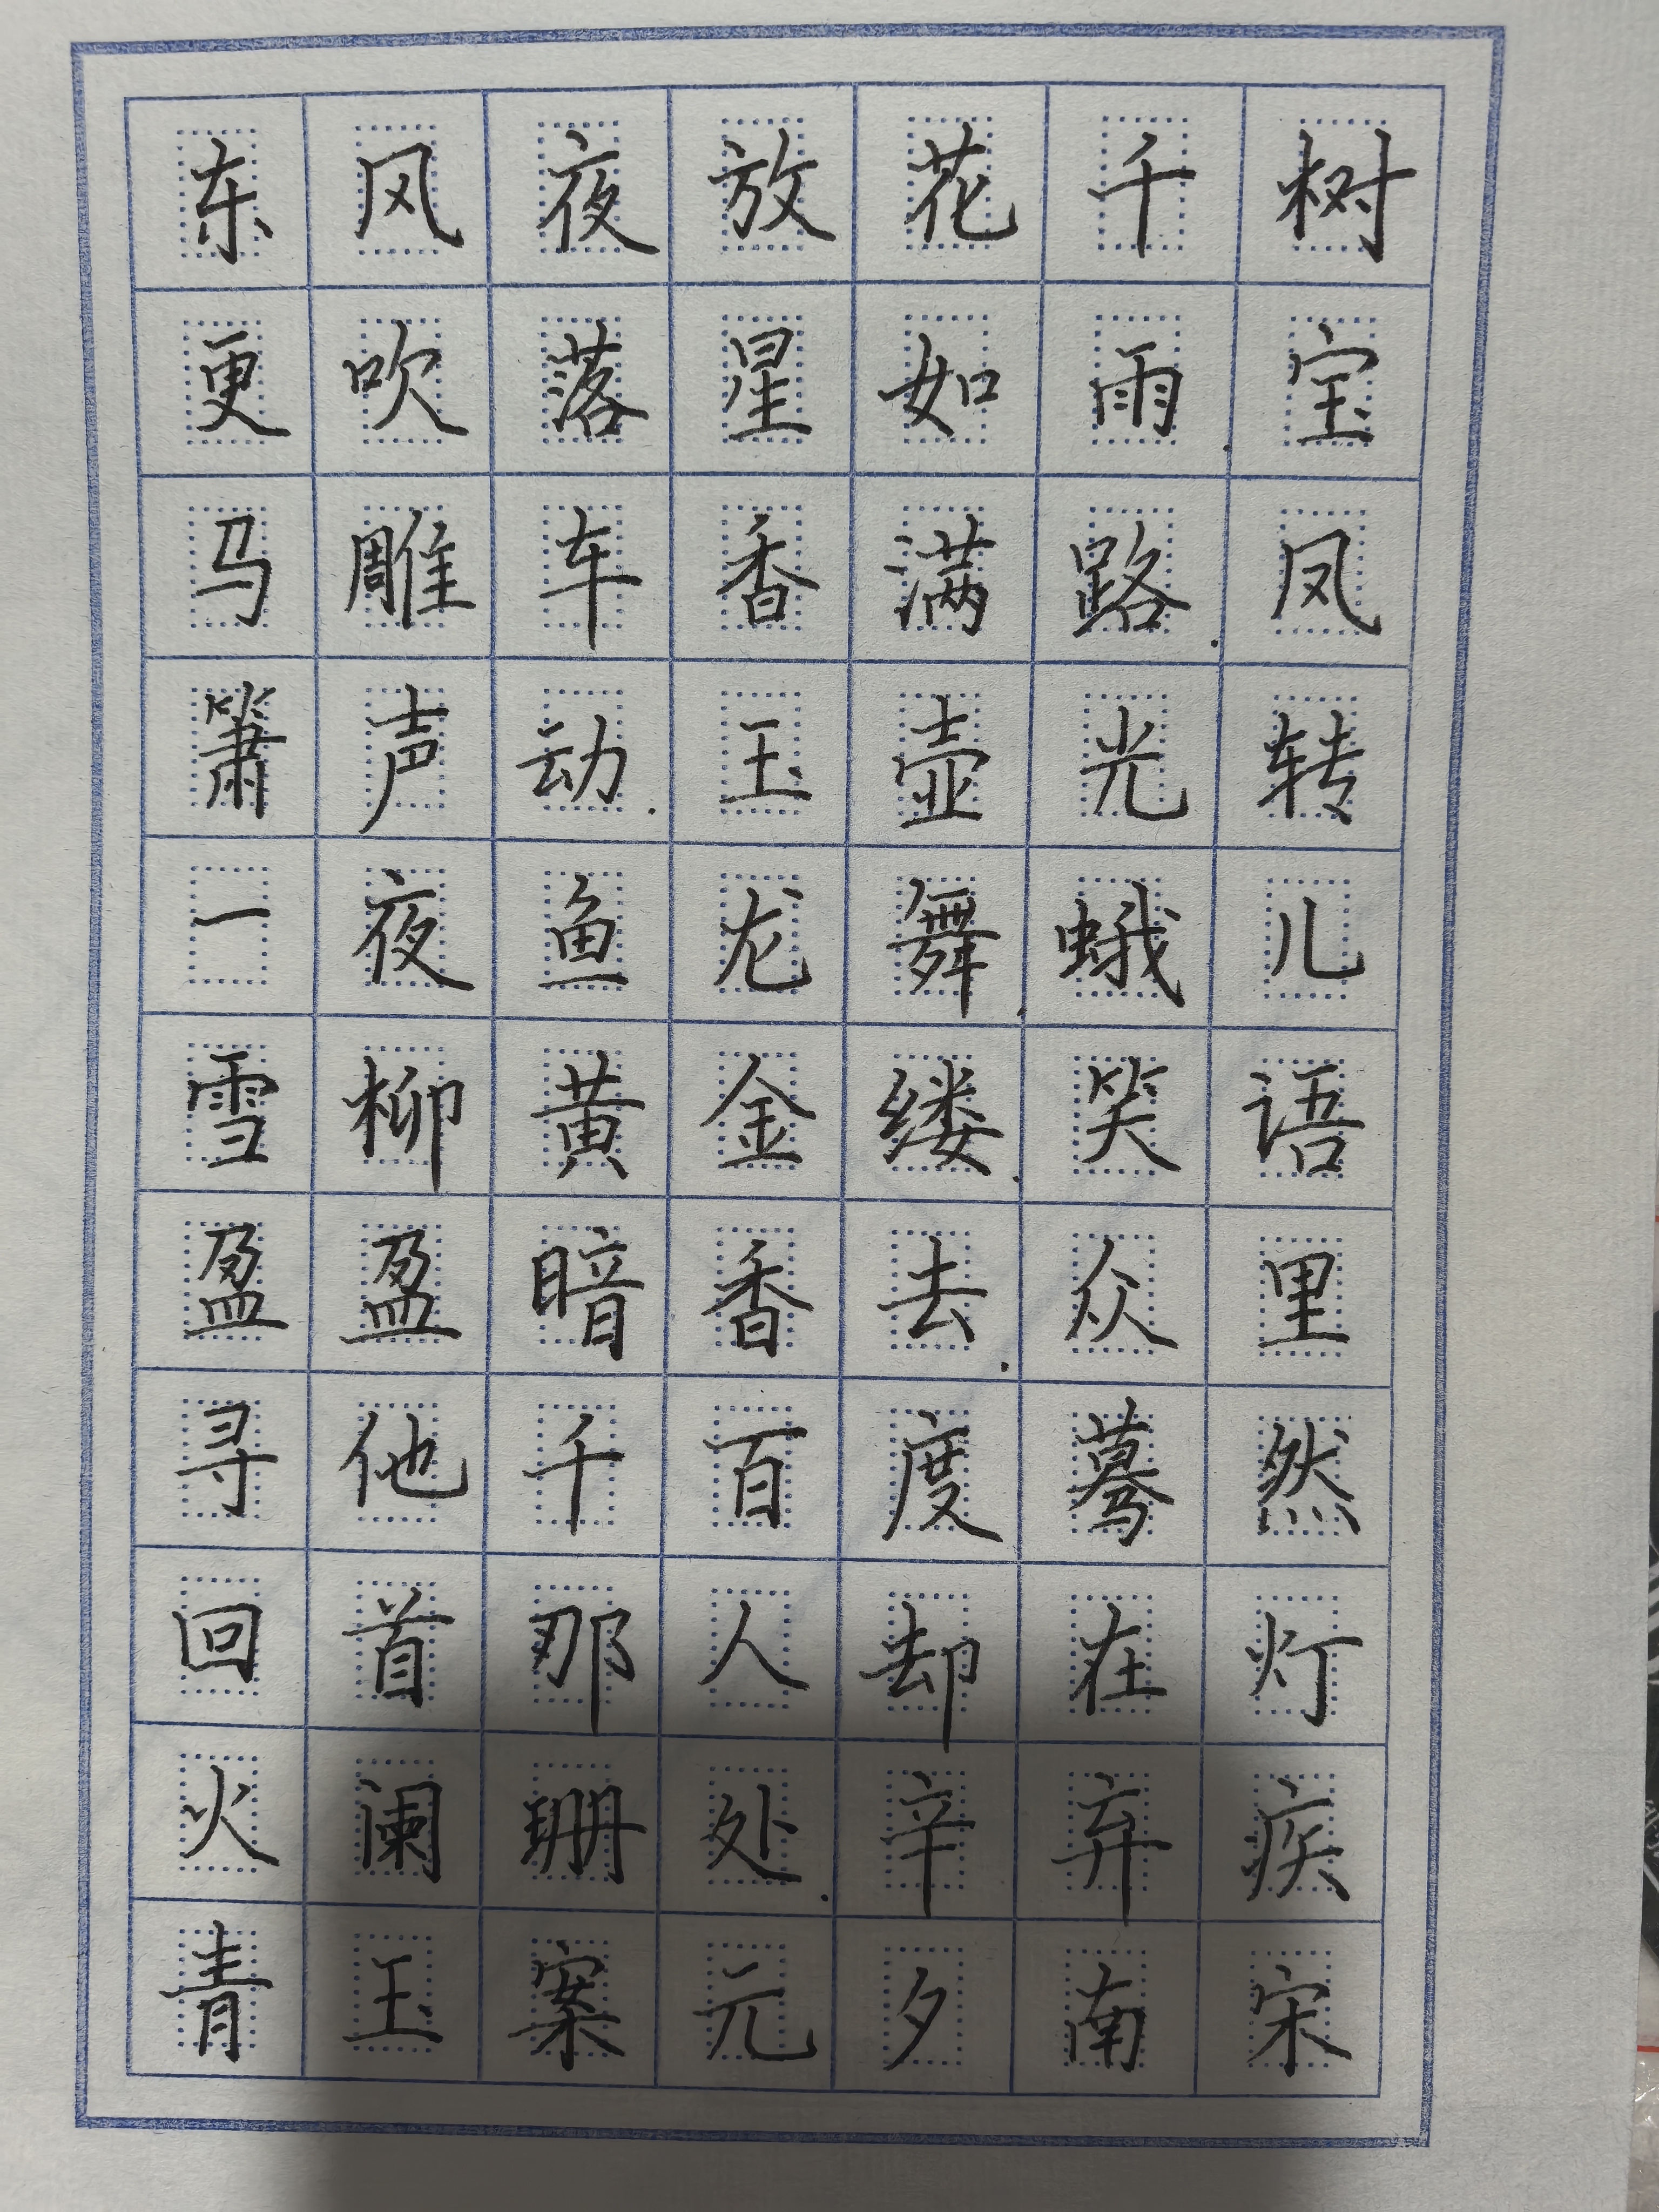 东风夜放花千树
更吹落星如雨.宝
马雕车香满路.凤
箫声动.玉壶光转
一夜鱼龙舞.蛾儿
雪柳黄金缕.笑语
盈盈暗香去.众里
寻他千百度蓦然
回首那人却在灯
火阑珊处.辛弃疾
青玉案元夕南宋